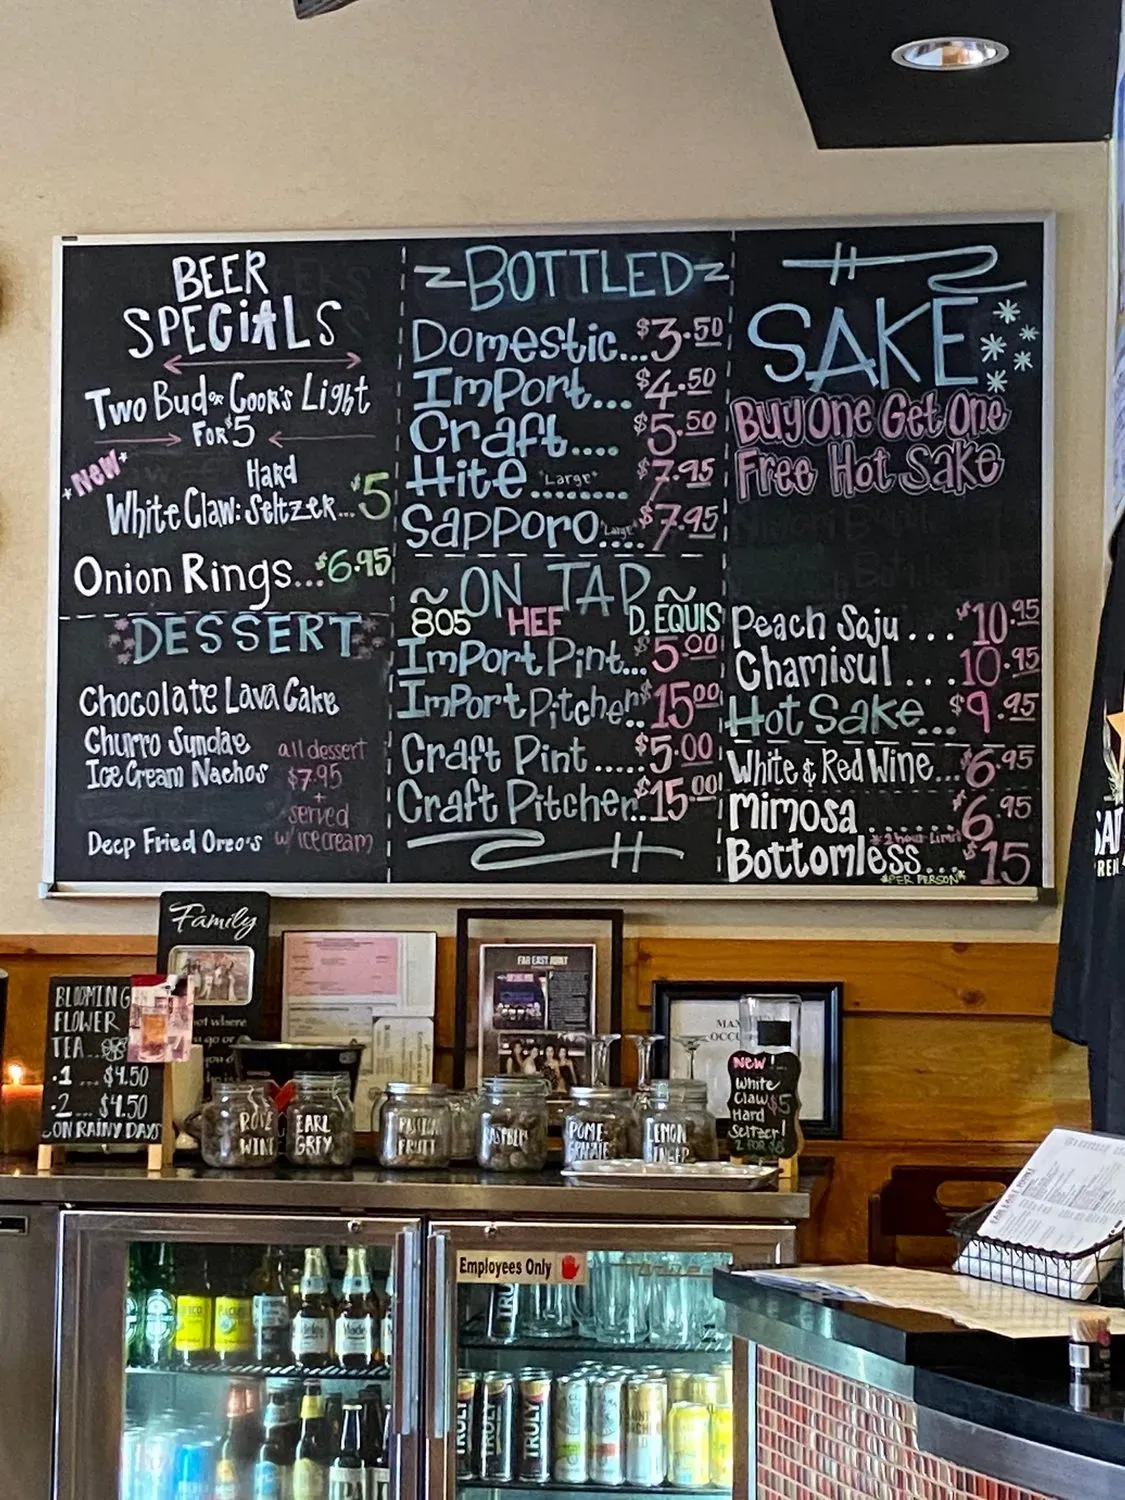 BEER
SPECIALS
Two Bud or Coor's Light
FOR $5
*NEW*
Hard
White Claw: Seltzer... $5
Onion Rings... $6.95
DESSERT
Chocolate Lava Cake
Churro Sundae
Ice Cream Nachos
Deep Fried Oreo's
all dessert
$7.95
+
served
w/ ice cream
BOTTLED
Domestic... $3.50
Import... $4.50
Craft.... $5.50
Hite "Large" ........ $7.95
Sapporo "Large" .... $7.95
~ON TAP~
805 HEF D. EQUIS
Import Pint... $5.00
Import Pitcher.. $15.00
Craft Pint ..... $5.00
Craft Pitcher.. $15.00
SAKE
Buy One Get One
Free Hot Sake
Peach Soju ... $10.95
Chamisul ... 10.95
Hot Sake... $9.95
White & Red Wine... $6.95
Mimosa ...... $6.95
*2 hour Limit
Bottomless.... $15
*PER PERSON*
Family
BLOOMING
FLOWER
TEA...
.1 ... $4.50
.2 ... $4.50
ON RAINY DAYS
FAR EAST JOINT
ROSE
WINE
EARL
GREY
PASSION
FRUIT
POME-
GRANATE
LEMON
GINGER
NEW!
White
Claw $5
Hard
Seltzer!
2 FOR $8
Employees Only
TRULY
TRULY
TRULY
Modelo
IPA